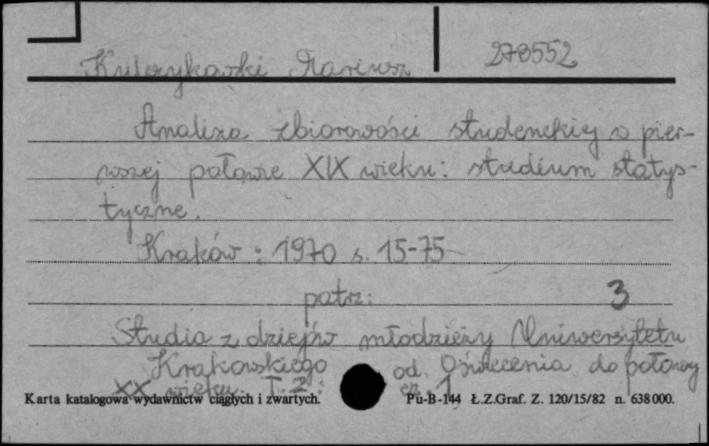 Kulczykowski Mariusz 278552
Analiza zbiorowości studenckiej w pier-
wszej połowie XIX wieku: studium statys-
tyczne.
Kraków : 1970 s. 15-75
patrz: 3
Studia z dziejów młodzieży Uniwersytetu
Krakowskiego od Oświecenia do połowy
XX wieku. T. 2: cz. 1
Karta katalogowa wydawnictw ciągłych i zwartych. Pu-B-144 Ł.Z.Graf. Z. 120/15/82 n. 638 000.